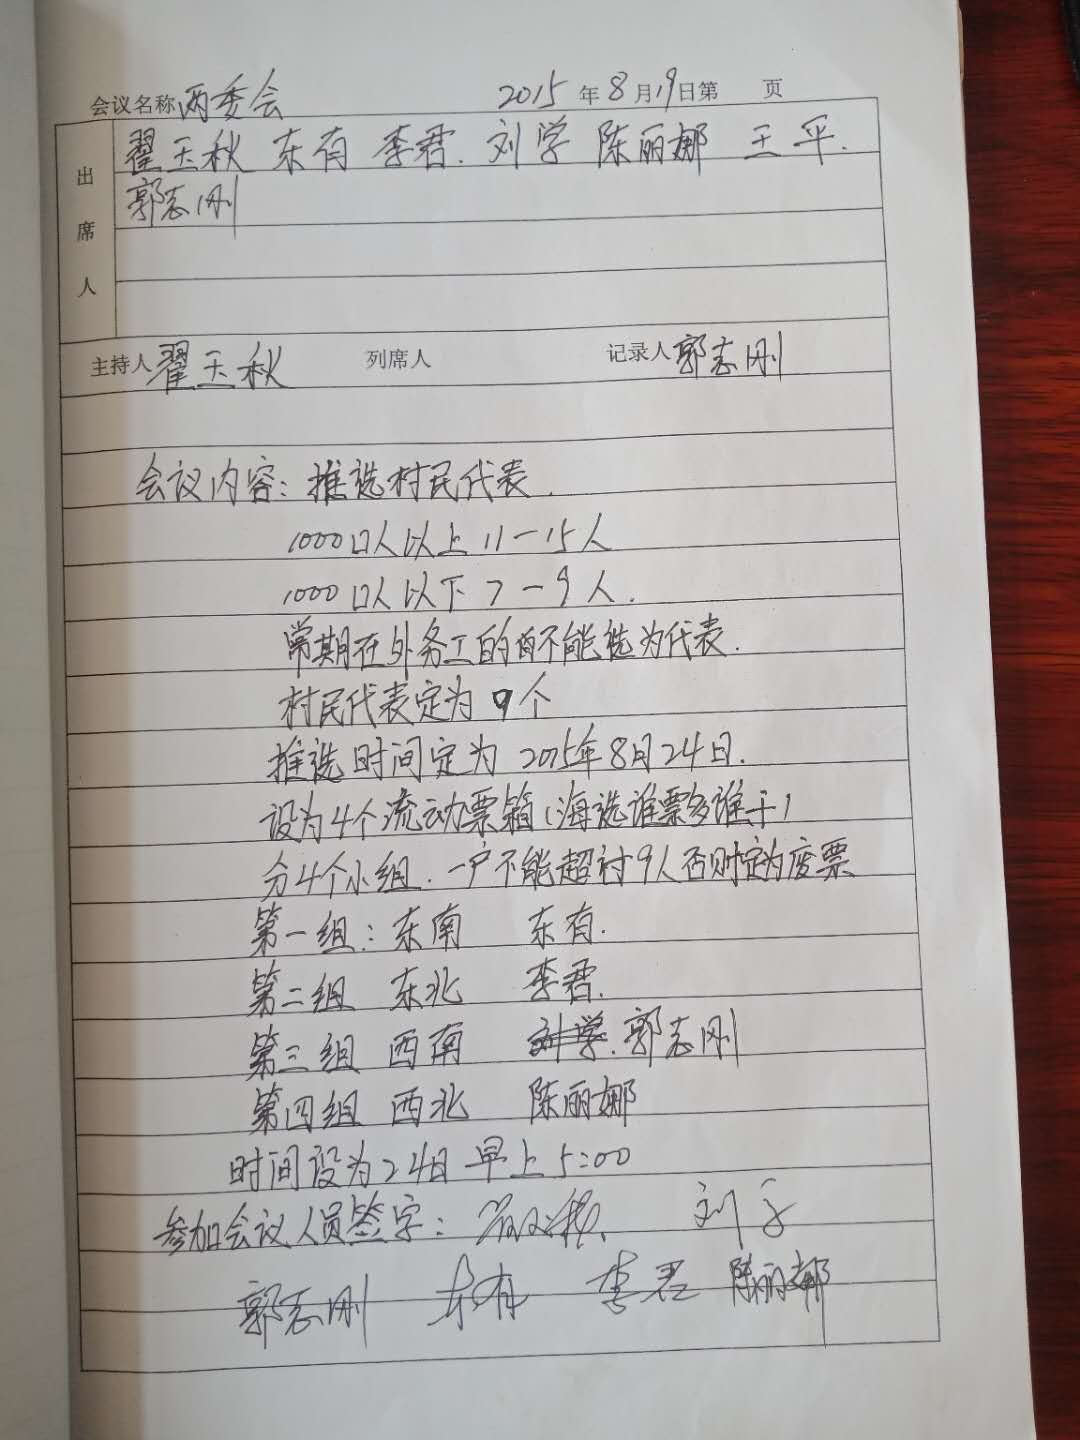 会议名称 两委会 2015年8月19日第 页
出席人 翟玉秋 东有 李君. 刘学 陈丽娜 王平.
郭志刚
主持人 翟玉秋 列席人 记录人 郭志刚
会议内容: 推选村民代表.
1000口人以上 11-15人
1000口人以下 7-9人.
常期在外务工的 不能选为代表.
村民代表定为 9个
推选时间定为 2015年8月24日.
设为4个流动票箱(海选谁票多谁干)
分4个小组. 一户不能超过9人否则定为废票
第一组: 东南 东有.
第二组 东北 李君.
第三组 西南 刘学. 郭志刚
第四组 西北 陈丽娜
时间设为24日 早上5:00
参加会议人员签字: 刘学
郭志刚 东有 李君 陈丽娜